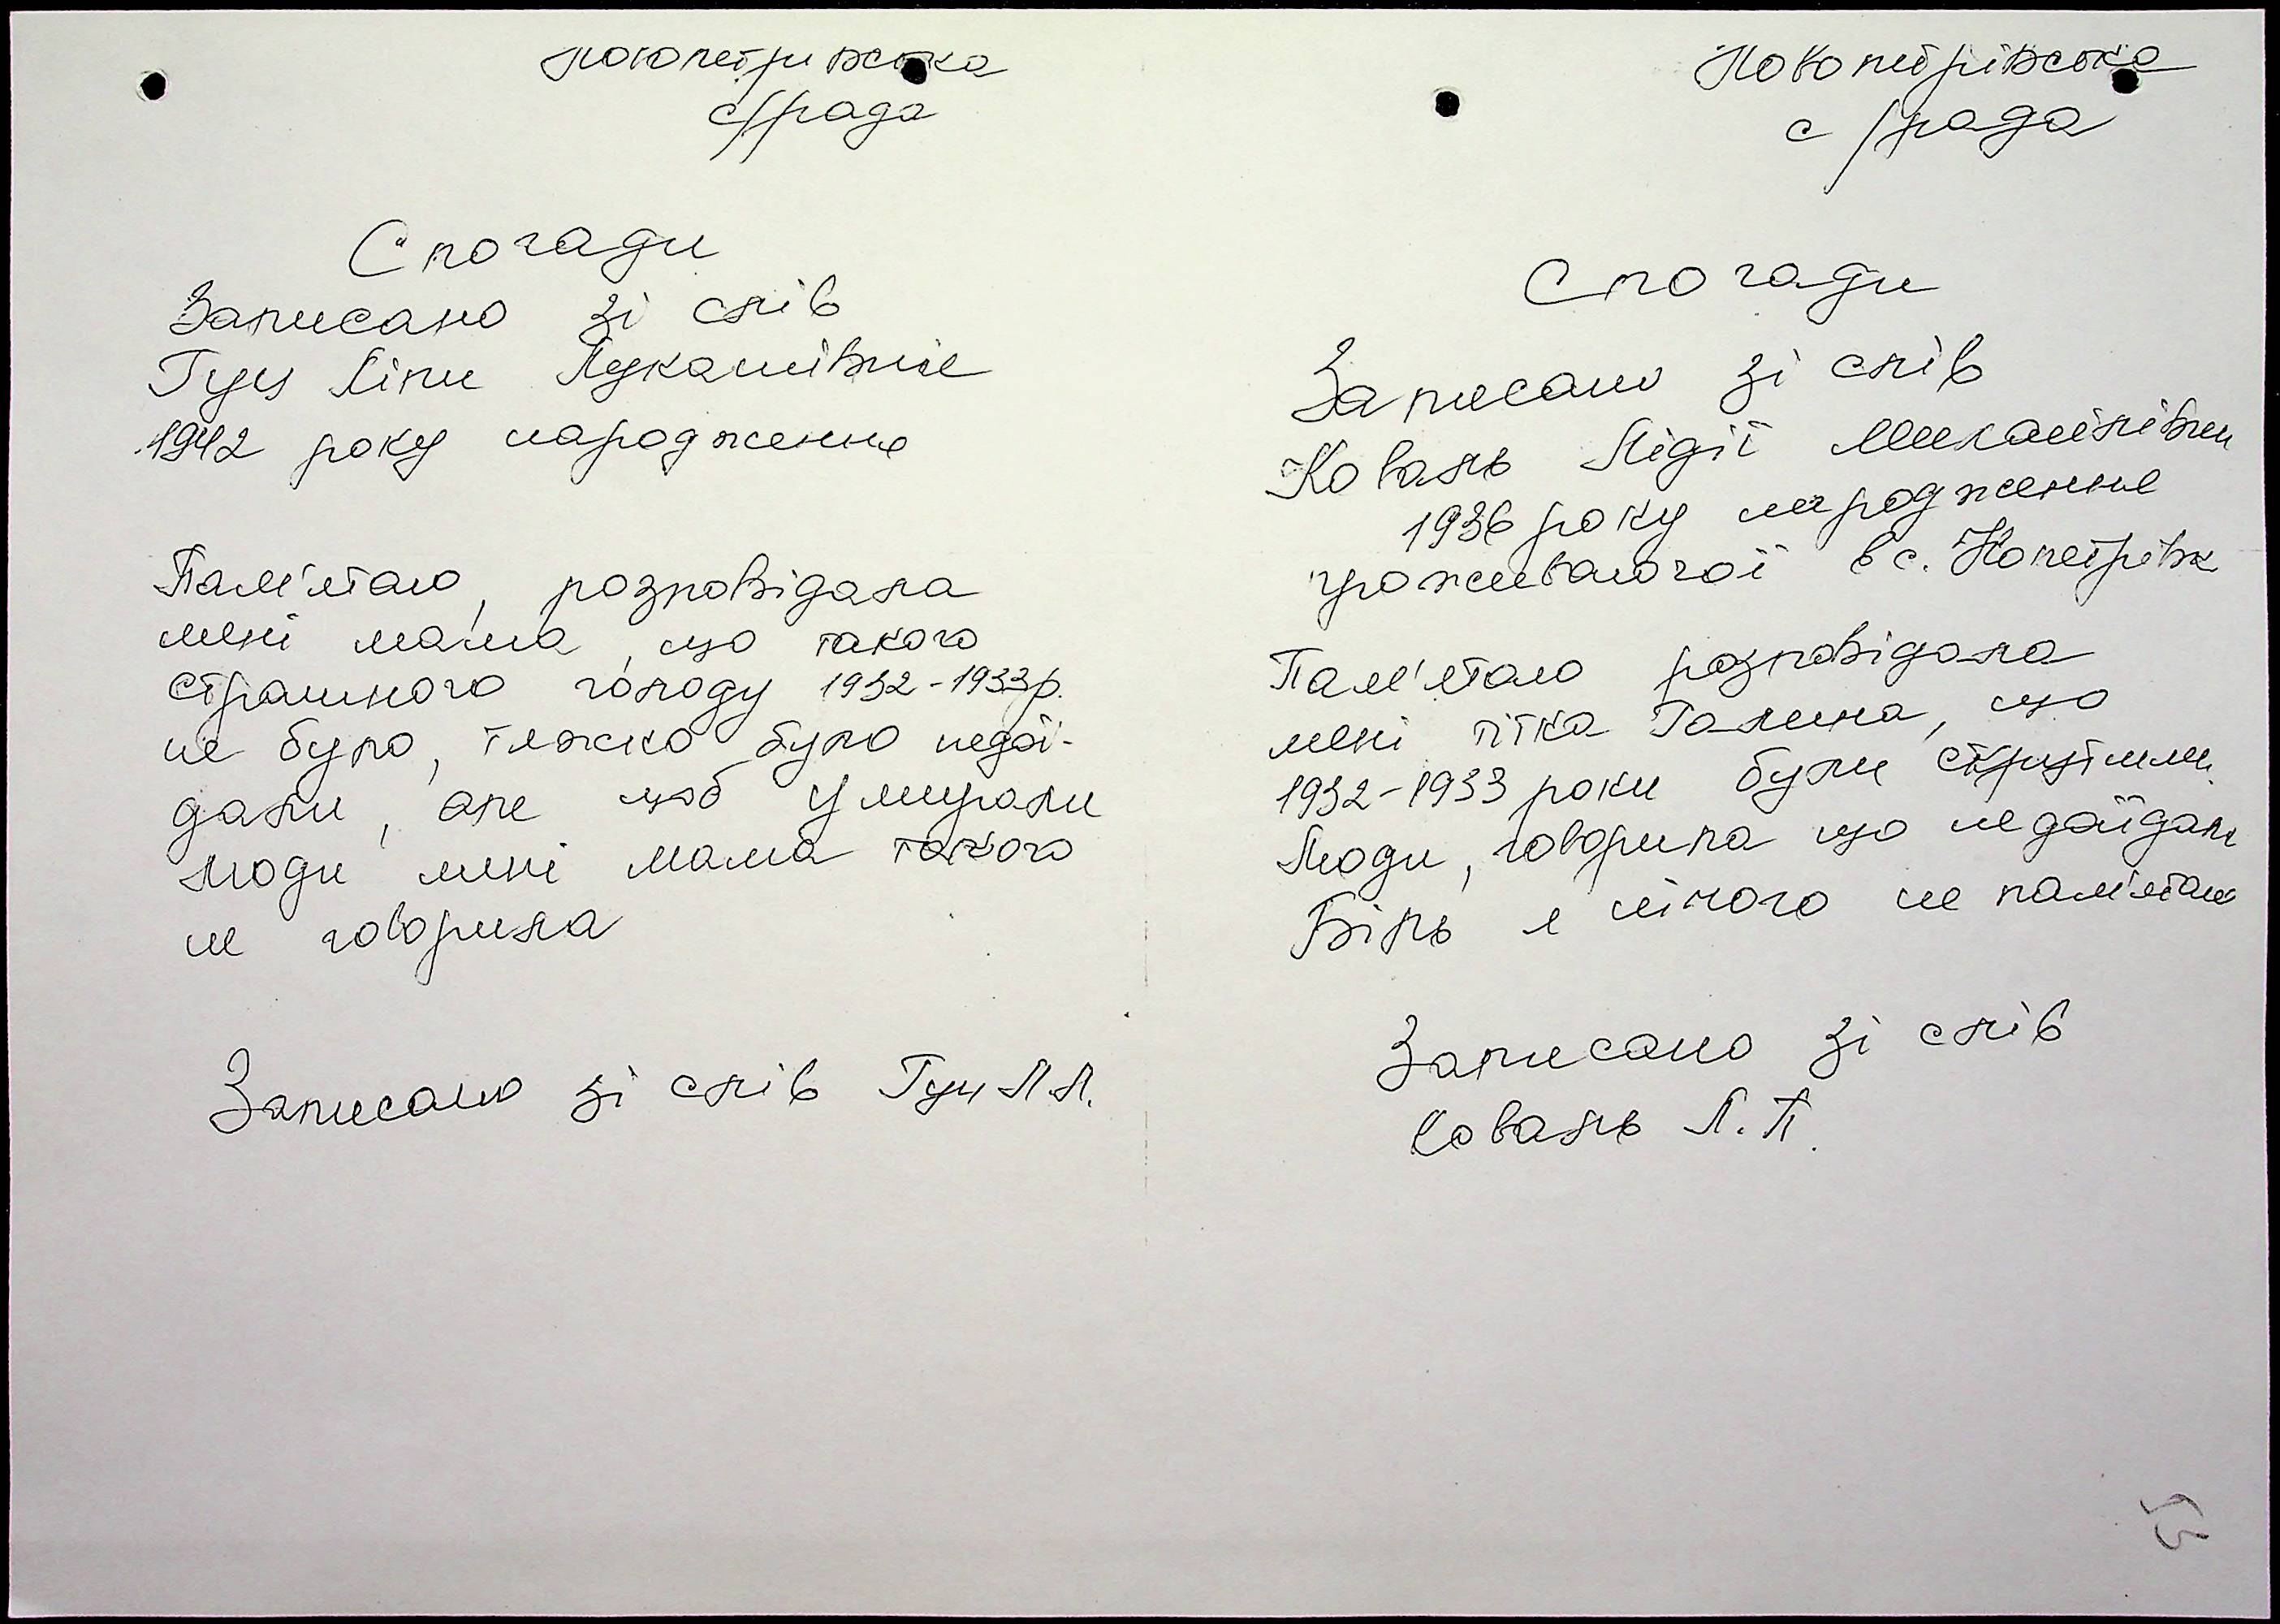 Новопетривська
с/рада
Спогади
Записано зі слів
Гуц Ліли Лукашівние
1942 року народження
Пам'ятаю, розповідала
мені мама, що такого
страшного голоду 1932-1933р.
не було, тяжко було недої-
дали, але щоб умирали
люди мені мама такого
не говорила
Записано зі слів Гуц Л.Л.
Новопетрівська
с/рада
Спогади
Записано зі слів
Коваль Лідії Михайлівни
1936 року народження
проживаючої в с. Нопетрівк
Пам'ятаю розповідала
мені тітка Галина, що
1932-1933 роки були
Люди, говорила що недоїдали
Біль я нічого не пам'ятаю
Записано зі слів
Коваль Л.П.
53